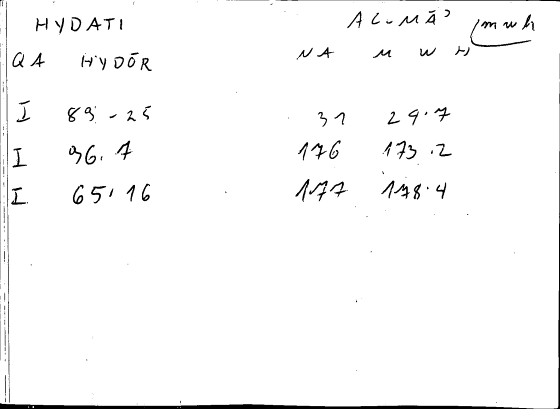 HYDATI AL-MĀʾ mwh
QA HYDŌR NA M W H
I 89-25 31 29.7
I 96.7 176 173.2
I 65,16 177 178.4